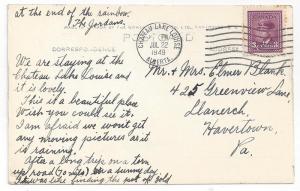 at the end of the rainbow.
The Jordans.
POST CARD
CORRESPONDENCE
CHATEAU LAKE LOUISE
PM
JUL 22
1949
ALBERTA
We are staying at the
Chateau Lake Louise and
it is lovely.
This is a beautiful place
Wish you could see it.
I am afraid we won't get
any moving pictures as it
is raining.
After a long trip on a torn
up road (50 miles) on a sunny day.
It was like finding the pot of gold
Mr. & Mrs. Elmer Blank
425 Greenview Lane
Llanerch
Havertown,
Pa.